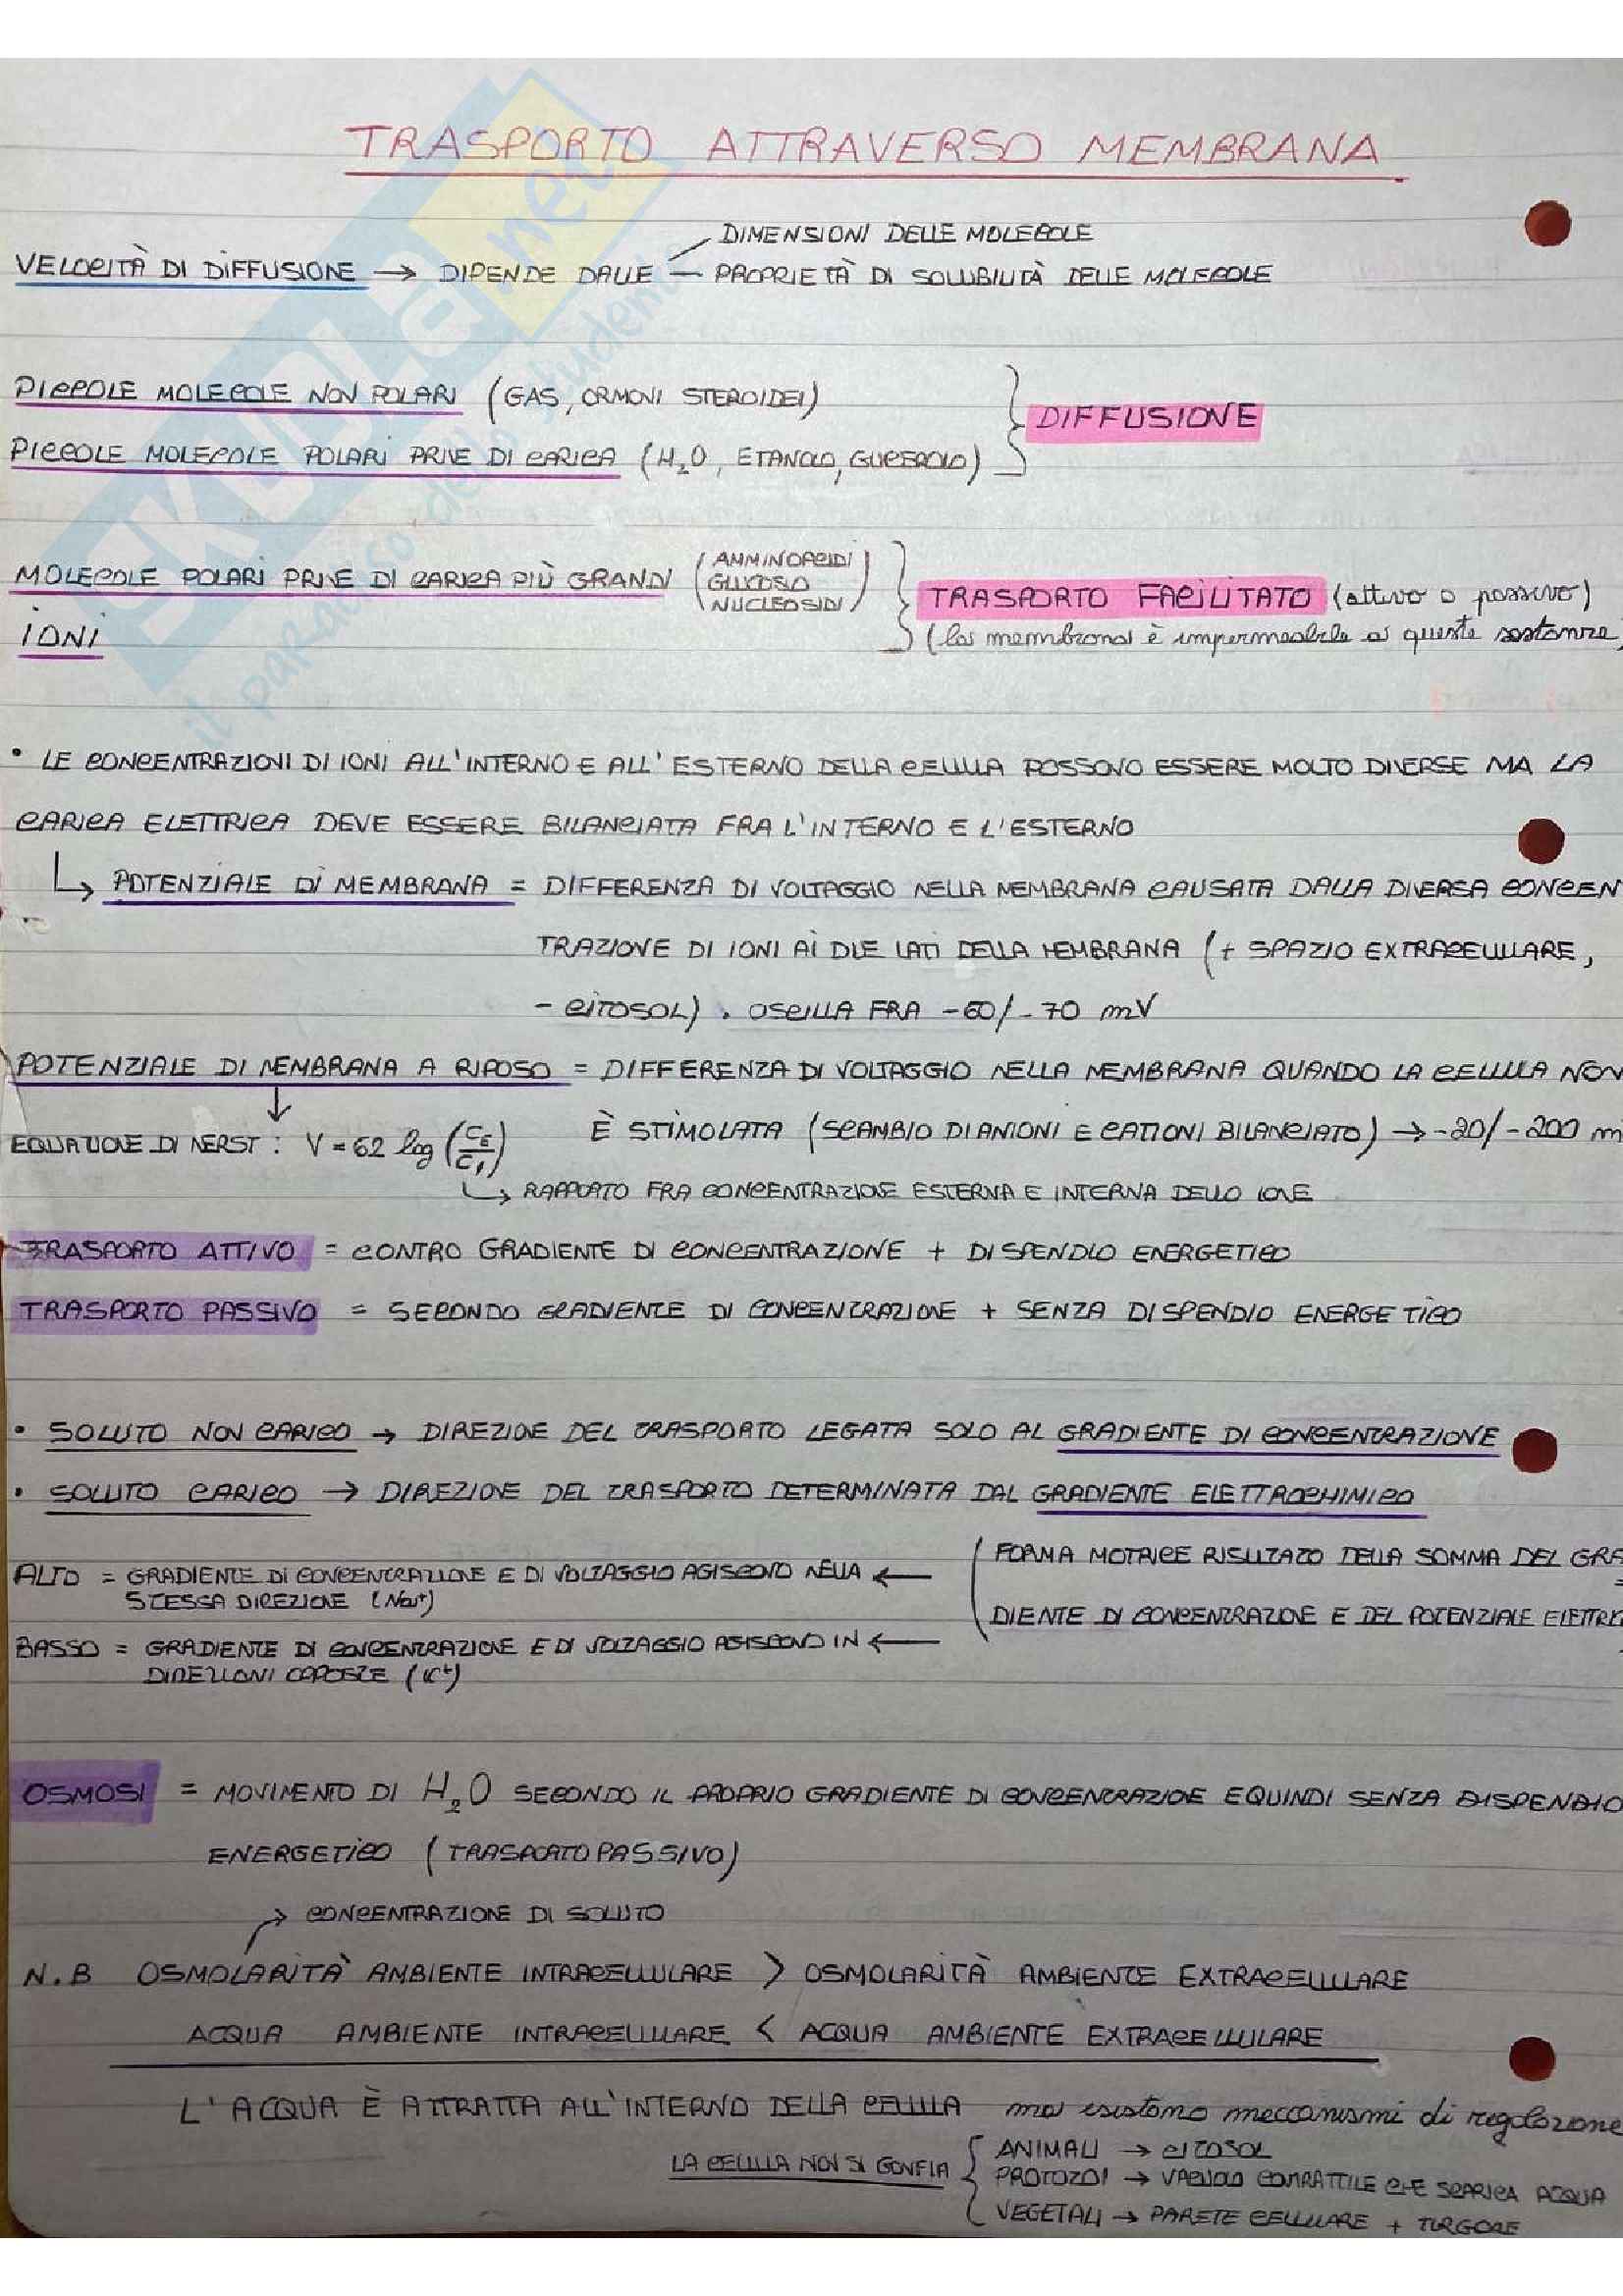 TRASPORTO ATTRAVERSO MEMBRANA
DIMENSIONI DELLE MOLECOLE
VELOCITÀ DI DIFFUSIONE → DIPENDE DALLE — PROPRIETÀ DI SOLUBILITÀ DELLE MOLECOLE
PICCOLE MOLECOLE NON POLARI (GAS, ORMONI STEROIDEI)
DIFFUSIONE
PICCOLE MOLECOLE POLARI PRIVE DI CARICA (H₂O, ETANOLO, GLICEROLO)
MOLECOLE POLARI PRIVE DI CARICA PIÙ GRANDI (AMMINOACIDI
GLUCOSIO
NUCLEOSIDI)
TRASPORTO FACILITATO (attivo o passivo)
IONI
(la membrana è impermeabile a queste sostanze)
• LE CONCENTRAZIONI DI IONI ALL'INTERNO E ALL'ESTERNO DELLA CELLULA POSSONO ESSERE MOLTO DIVERSE MA LA
CARICA ELETTRICA DEVE ESSERE BILANCIATA FRA L'INTERNO E L'ESTERNO
↳ POTENZIALE DI MEMBRANA = DIFFERENZA DI VOLTAGGIO NELLA MEMBRANA CAUSATA DALLA DIVERSA CONCEN
TRAZIONE DI IONI AI DUE LATI DELLA MEMBRANA (+ SPAZIO EXTRACELLULARE,
- CITOSOL). OSCILLA FRA -60/-70 mV
POTENZIALE DI MEMBRANA A RIPOSO = DIFFERENZA DI VOLTAGGIO NELLA MEMBRANA QUANDO LA CELLULA NON
È STIMOLATA (SCAMBIO DI ANIONI E CATIONI BILANCIATO) → -20/-200 m
EQUAZIONE DI NERST : V = 62 log (CE/CI)
↳ RAPPORTO FRA CONCENTRAZIONE ESTERNA E INTERNA DELLO IONE
TRASPORTO ATTIVO = CONTRO GRADIENTE DI CONCENTRAZIONE + DISPENDIO ENERGETICO
TRASPORTO PASSIVO = SECONDO GRADIENTE DI CONCENTRAZIONE + SENZA DISPENDIO ENERGETICO
• SOLUTO NON CARICO → DIREZIONE DEL TRASPORTO LEGATA SOLO AL GRADIENTE DI CONCENTRAZIONE
• SOLUTO CARICO → DIREZIONE DEL TRASPORTO DETERMINATA DAL GRADIENTE ELETTROCHIMICO
(FORMA MOTRICE RISULTATO DELLA SOMMA DEL GRA
DIENTE DI CONCENTRAZIONE E DEL POTENZIALE ELETTRI
ALTO = GRADIENTE DI CONCENTRAZIONE E DI VOLTAGGIO AGISCONO NELLA ←
STESSA DIREZIONE (Na+)
BASSO = GRADIENTE DI CONCENTRAZIONE E DI VOLTAGGIO AGISCONO IN ←
DIREZIONI OPPOSTE (K+)
OSMOSI = MOVIMENTO DI H₂O SECONDO IL PROPRIO GRADIENTE DI CONCENTRAZIONE E QUINDI SENZA DISPENDIO
ENERGETICO (TRASPORTO PASSIVO)
→ CONCENTRAZIONE DI SOLUTO
N.B OSMOLARITÀ AMBIENTE INTRACELLULARE > OSMOLARITÀ AMBIENTE EXTRACELLULARE
ACQUA AMBIENTE INTRACELLULARE < ACQUA AMBIENTE EXTRACELLULARE
L'ACQUA È ATTRATTA ALL'INTERNO DELLA CELLULA ma esistono meccanismi di regolazione
ANIMALI → CITOSOL
LA CELLULA NON SI GONFIA
PROTOZOI → VACUOLO CONTRATTILE CHE SCARICA ACQUA
VEGETALI → PARETE CELLULARE + TURGORE
SKUOLA.net
il paradiso dello studente